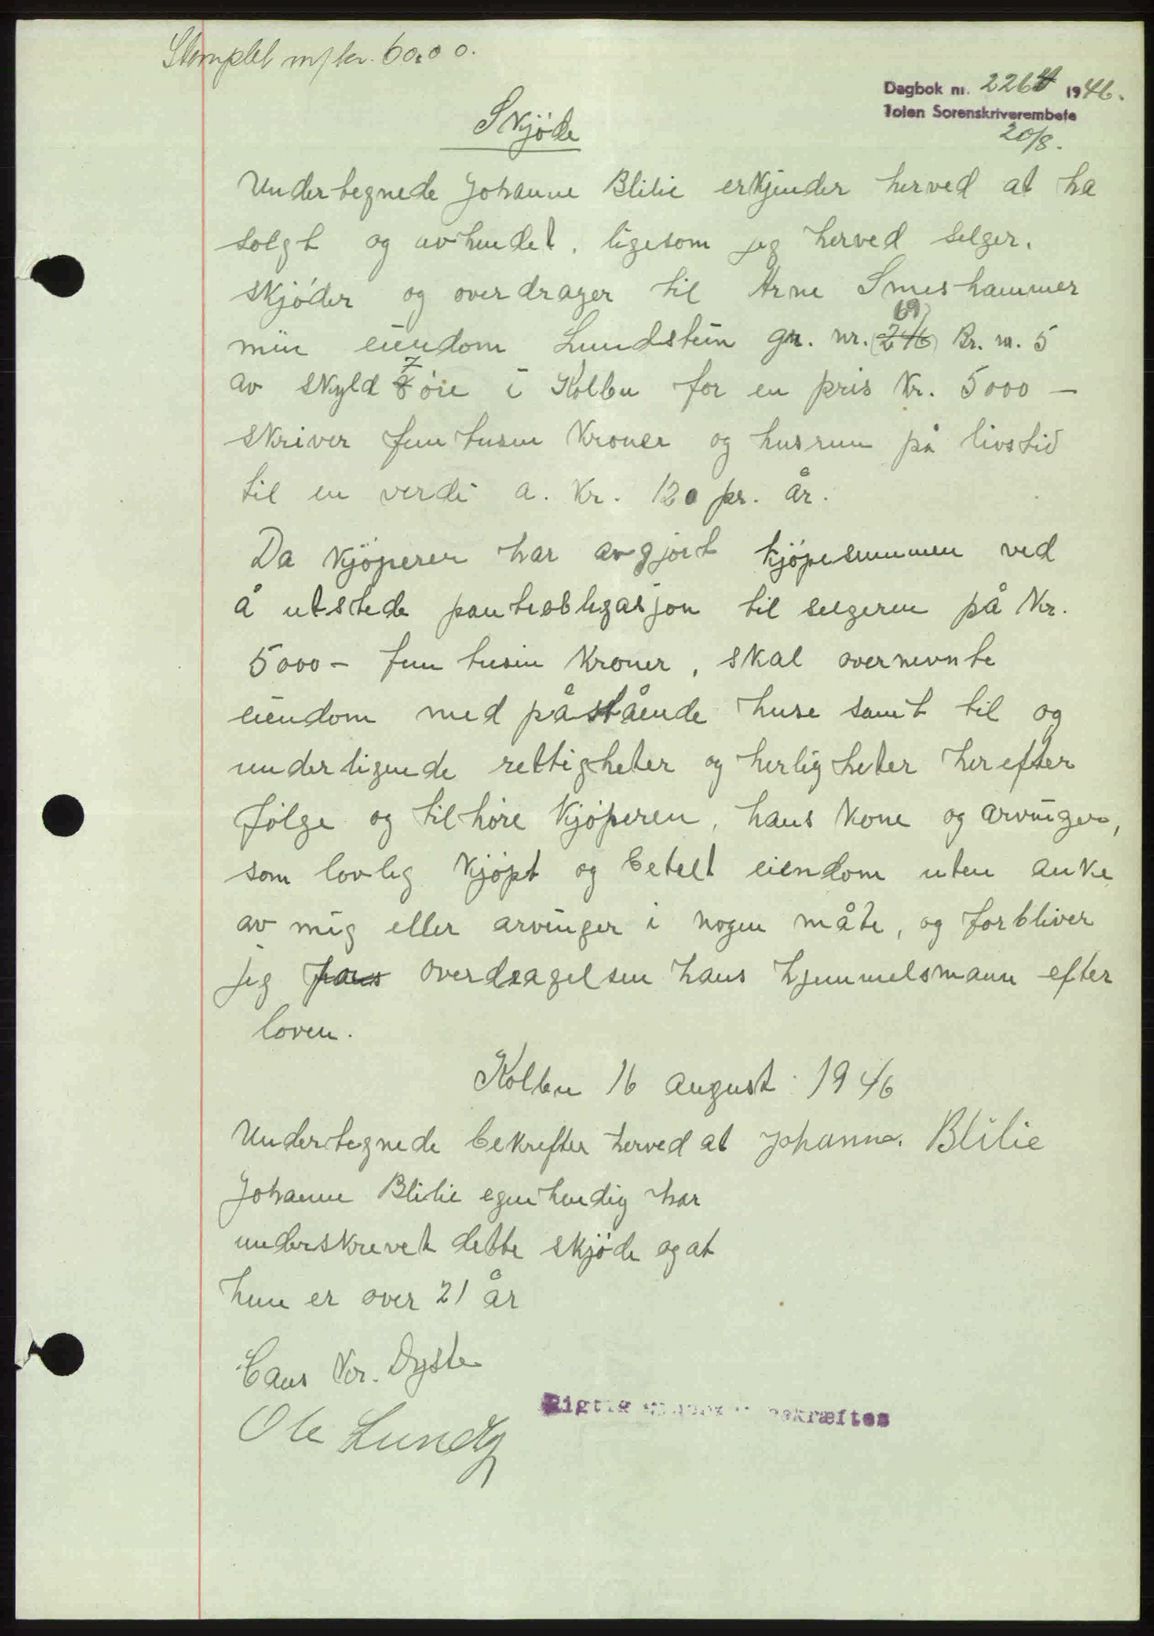 Stemplet m/kr. 60.00.
Dagbok nr. 2264 1946.
Toten Sorenskriverembete
20/8.
Skjøde
Undertegnede Johanne Blilie erkjender herved at ha
solgt og avhendet, ligesom jeg herved selger,
skjøder og overdrager til Arne Smeshammer
69
min eiendom Lundstein gr. nr. (246) Br. nr. 5
av skyld 7 øre i Kolbu for en pris kr. 5000 –
skriver fem tusen kroner og husrum på livstid
til en verdi a. kr. 120 pr. år.
Da kjøperen har avgjort kjøpesummen ved
å utstede panteobligasjon til selgeren på kr.
5000 – fem tusen kroner, skal overnevnte
eiendom med påstående huse samt til og
underligende rettigheter og herligheter herefter
følge og tilhøre kjøperen, hans kone og arvinger,
som lovlig kjøpt og betalt eiendom uten anke
av mig eller arvinger i nogen måte, og forbliver
jeg hans overdragelsen hans hjemmelsmann efter
loven.
Kolbu 16 august 1946
Undertegnede bekrefter herved at Johanne. Blilie
Johanne Blilie egenhendig har
underskrevet dette skjøde og at
hun er over 21 år
Hans Kr. Dyste
Ole Lundby
Rigtig bekræftes